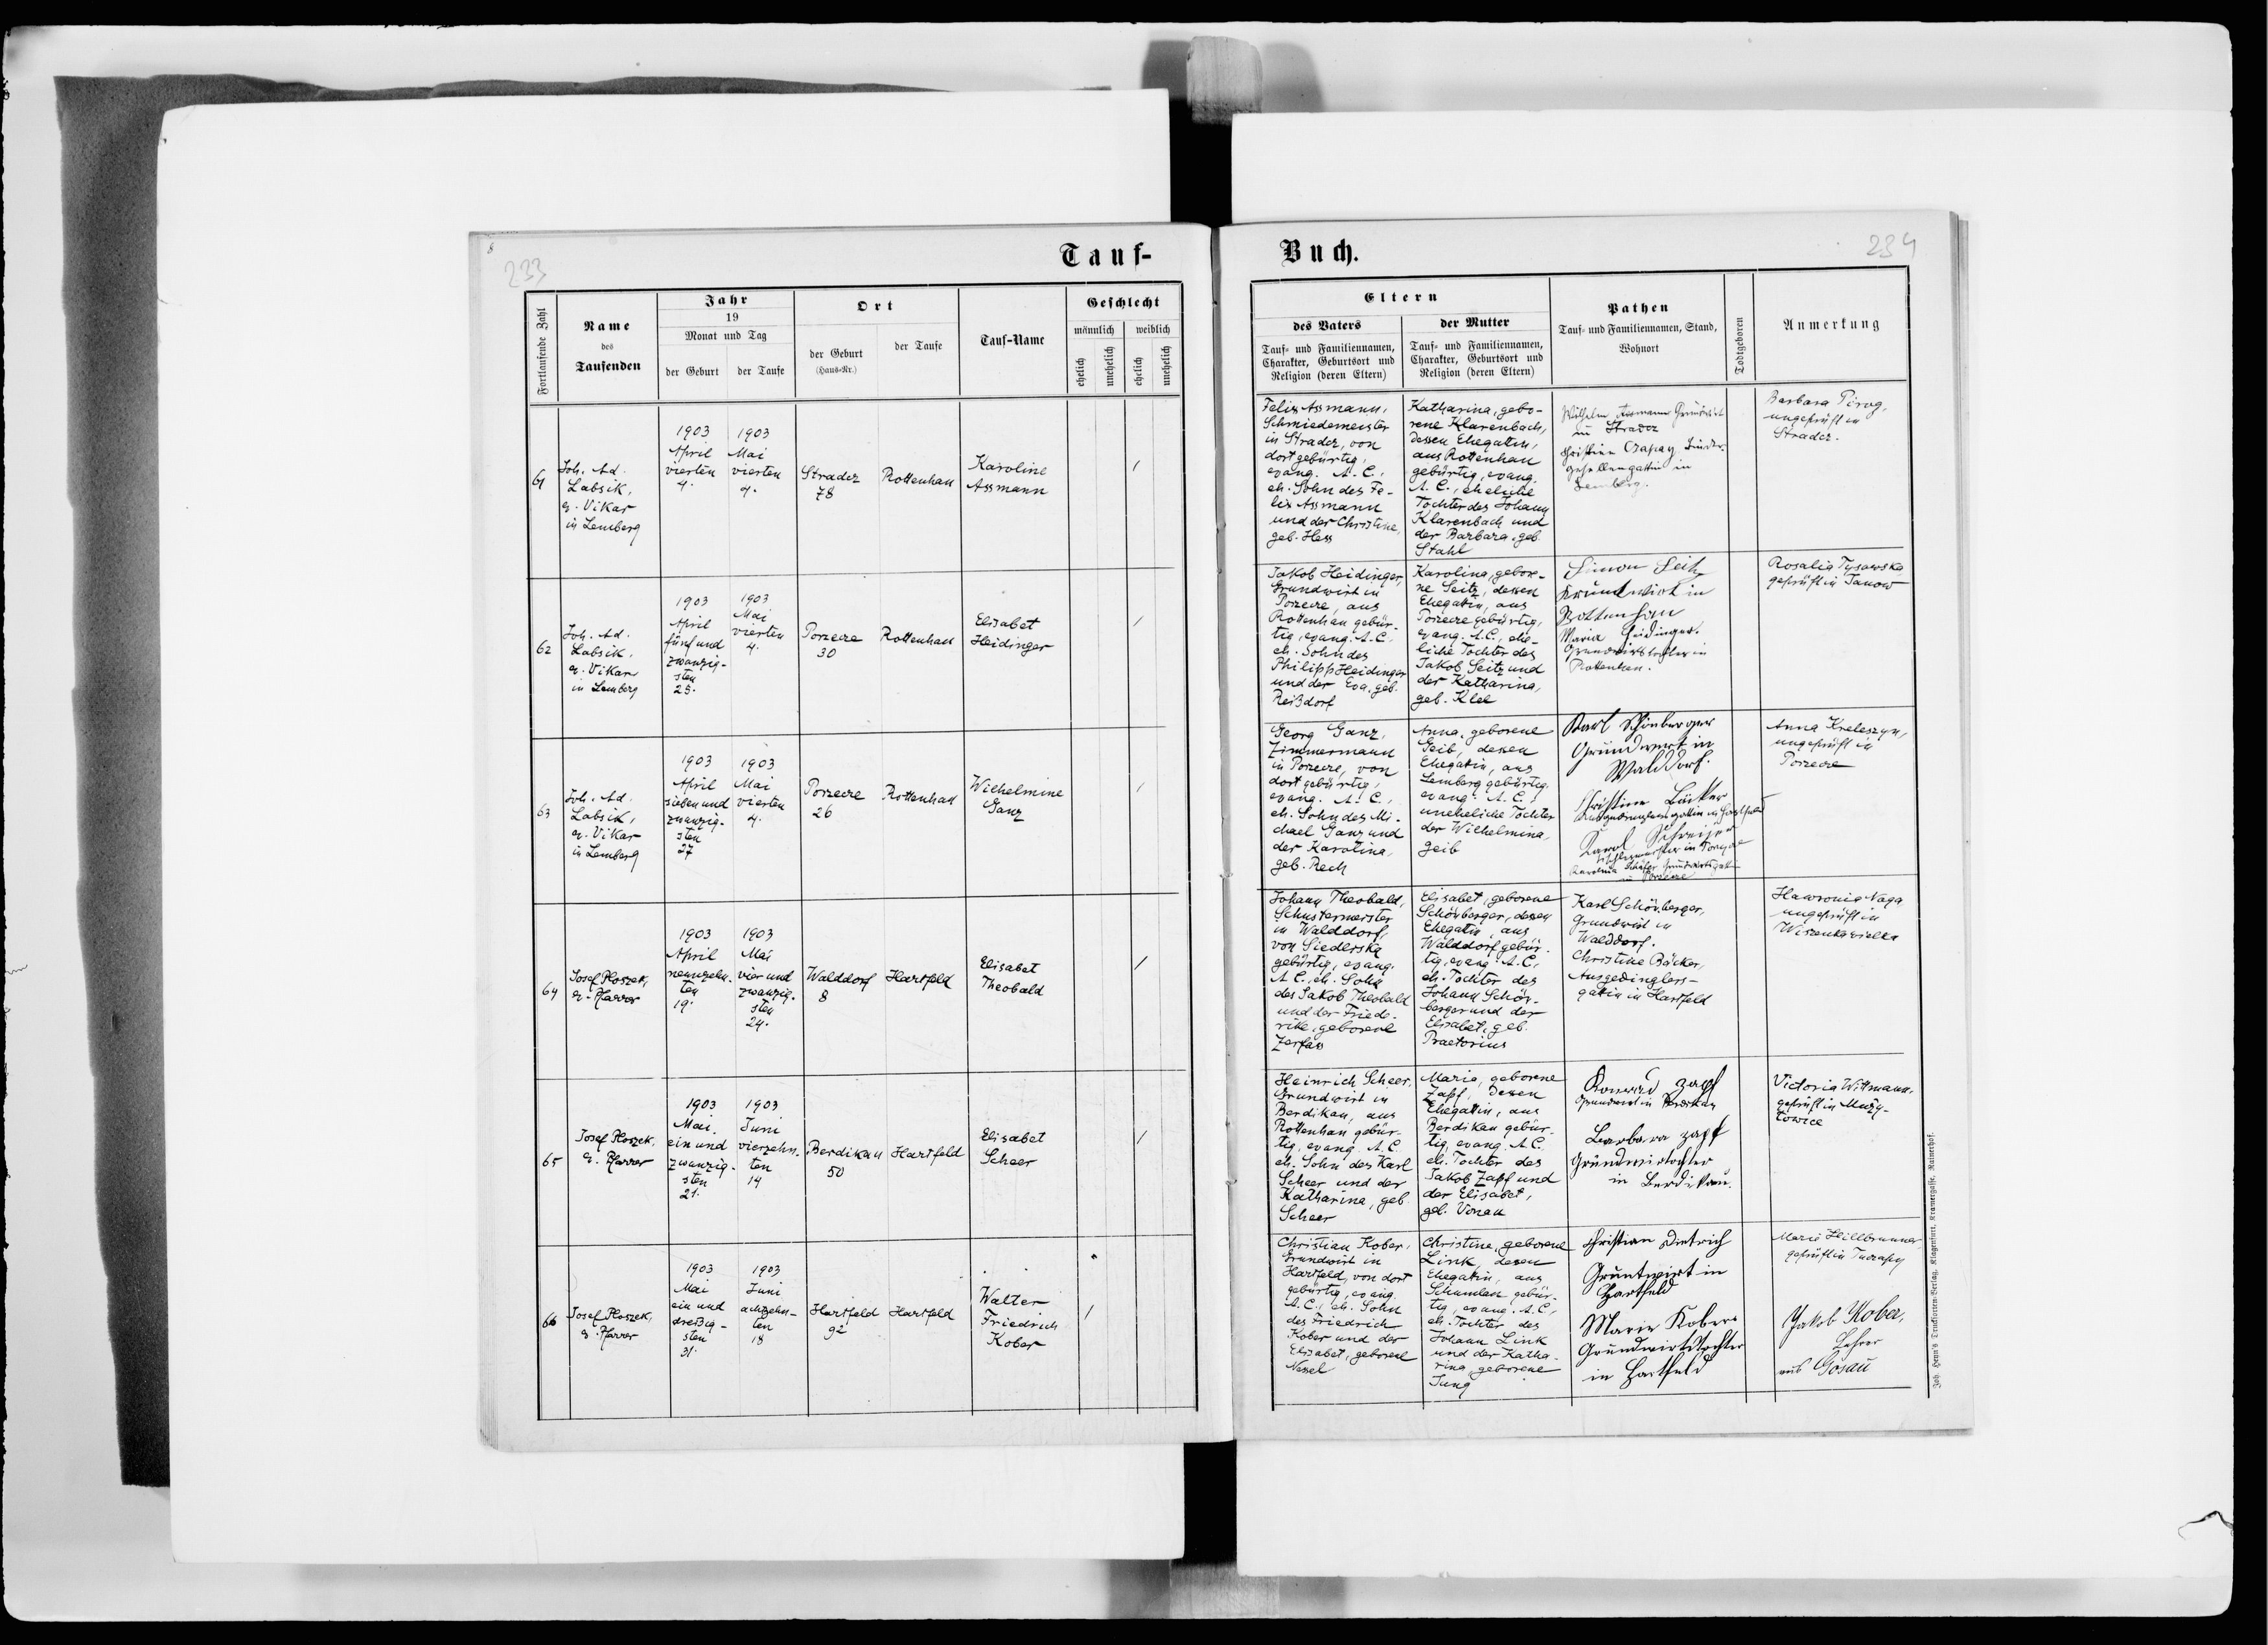 8
233
Tauf-
Fortlaufende Zahl
Name
des
Taufenden
Jahr
19
Monat und Tag
der Geburt
der Taufe
Ort
der Geburt
(Haus-Nr.)
der Taufe
Tauf-Name
Geschlecht
männlich
weiblich
ehelich
unehelich
ehelich
unehelich
61
Joh. Ad.
Labsik,
ev. Vikar
in Lemberg
1903
April
vierten
4.
1903
Mai
vierten
4.
Stradcz
78
Rottenhan
Karoline
Assmann
/
62
Joh. Ad.
Labsik,
ev. Vikar
in Lemberg
1903
April
fünf und
zwanzig-
sten
25.
1903
Mai
vierten
4.
Porzecze
30
Rottenhan
Elisabet
Heidinger
/
63
Joh. Ad.
Labsik,
ev. Vikar
in Lemberg
1903
April
sieben und
zwanzig-
sten
27
1903
Mai
vierten
4.
Porzecze
26
Rottenhan
Wilhelmine
Ganz
/
64
Josef Ploszek,
ev. Pfarrer
1903
April
neunzehn-
ten
19.
1903
Mai
vier und
zwanzig-
sten
24.
Walddorf
8
Hartfeld
Elisabet
Theobald
/
65
Josef Ploszek,
ev. Pfarrer
1903
Mai
ein und
zwanzig-
sten
21.
1903
Juni
vierzehn-
ten
14
Berdikau
50
Hartfeld
Elisabet
Scheer
/
66
Josef Ploszek,
ev. Pfarrer
1903
Mai
ein und
dreißig-
sten
31.
1903
Juni
achtzehn-
ten
18
Hartfeld
92
Hartfeld
Walter
Friedrich
Kober
/
Buch.
234
Eltern
des Vaters
Tauf- und Familiennamen,
Charakter, Geburtsort und
Religion (deren Eltern)
der Mutter
Tauf- und Familiennamen,
Charakter, Geburtsort und
Religion (deren Eltern)
Pathen
Tauf- und Familiennamen, Stand,
Wohnort
Todtgeboren
Anmerkung
Felix Assmann,
Schmiedemeister
in Stradcz, von
dort gebürtig,
evang. A. C.,
eh. Sohn des Fe-
lix Assmann
und der Christine,
geb. Hess
Katharina, gebo-
rene Klarenbach,
dessen Ehegatin,
aus Rottenhan
gebürtig, evang.
A. C., eheliche
Tochter des Johann
Klarenbach und
der Barbara, geb.
Stahl
Wilhelm Assmann Grundwirt
in Stradcz
Christine Czapay
gesellengattin in
Lemberg.
Barbara Pirog,
ungeprüft in
Stradcz.
Jakob Heidinger,
Grundwirt in
Porzecze, aus
Rottenhan gebür-
tig, evang. A. C.
eh. Sohn des
Philipp Heidinger
und der Eva, geb.
Reißdorf
Karolina, gebore-
ne Seitz, dessen
Ehegatin, aus
Porzecze gebürtig,
evang. A. C., ehe-
liche Tochter des
Jakob Seitz und
der Katharina,
geb. Klee
Simon Seitz
Grundwirt in
Rottenhan
Maria Heidinger.
Grundwirtstochter in
Rottenhan.
Rosalia Tysowska
geprüft in Janow
Georg Ganz,
Zimmermann
in Porzecze, von
dort gebürtig,
evang. A. C.,
eh. Sohn des Mi-
chael Ganz und
der Karolina,
geb. Rech
Anna, geborene
Geib, dessen
Ehegatin, aus
Lemberg gebürtig,
evang. A. C.,
uneheliche Tochter
der Wilhelmina,
Geib
Karl Schönberger
Grundwirt in
Walddorf.
Christine Bäcker
Ausgedinglersgattin in Hartfeld
Karol Schreiser
Tischlermeister in
Karolina Schäfer Grundwirtsgattin
in Porzecze
Anna Kreleszyn,
ungeprüft in
Porzecze
Johann Theobald,
Schustermeister
in Walddorf,
von Siedlerska
gebürtig, evang.
A. C., eh. Sohn
des Jakob Theobald
und der Friede-
rike, geborene
Zerfass
Elisabet, geborene
Schönberger, dessen
Ehegatin, aus
Walddorf gebür-
tig, evang. A. C.,
eh. Tochter des
Johann Schön-
berger und der
Elisabet, geb.
Praetorius
Karl Schönberger,
Grundwirt in
Walddorf.
Christine Bäcker,
Ausgedinglers-
gattin in Hartfeld
Hawronia Naga
ungeprüft in
Wiszenka wielka
Heinrich Scheer,
Grundwirt in
Berdikau, aus
Rottenhan gebür-
tig, evang. A. C.
eh. Sohn des Karl
Scheer und der
Katharina, geb.
Scheer
Maria, geborene
Zapf, dessen
Ehegattin, aus
Berdikau gebür-
tig, evang. A. C.
eh. Tochter des
Jakob Zapf und
der Elisabet,
geb. Vonau
Konrad Zapf
Grundwirt in Berdikau
Barbara Zapf
Grundwirtochter
in Berdikau.
Victoria Wittmann,
geprüft in Muży-
łowice
Christian Kober,
Grundwirt in
Hartfeld, von dort
gebürtig, evang.
A. C., eh. Sohn
des Friedrich
Kober und der
Elisabet, geborene
Nessel
Christine, geborene
Link, dessen
Ehegatin, aus
Schumlau gebür-
tig, evang. A. C.,
eh. Tochter des
Johann Link
und der Katha-
rina, geborene
Jung
Christian Dietrich
Grundwirt in
Hartfeld
Marie Kober
Grundwirtstochter
in Hartfeld
Maria Hillbrunner
geprüft in
Jakob Kober,
Lehrer
aus Gosau
Joh. Heyn's Drucksorten-Verlag, Klagenfurt, Kramergasse, Rainerhof.